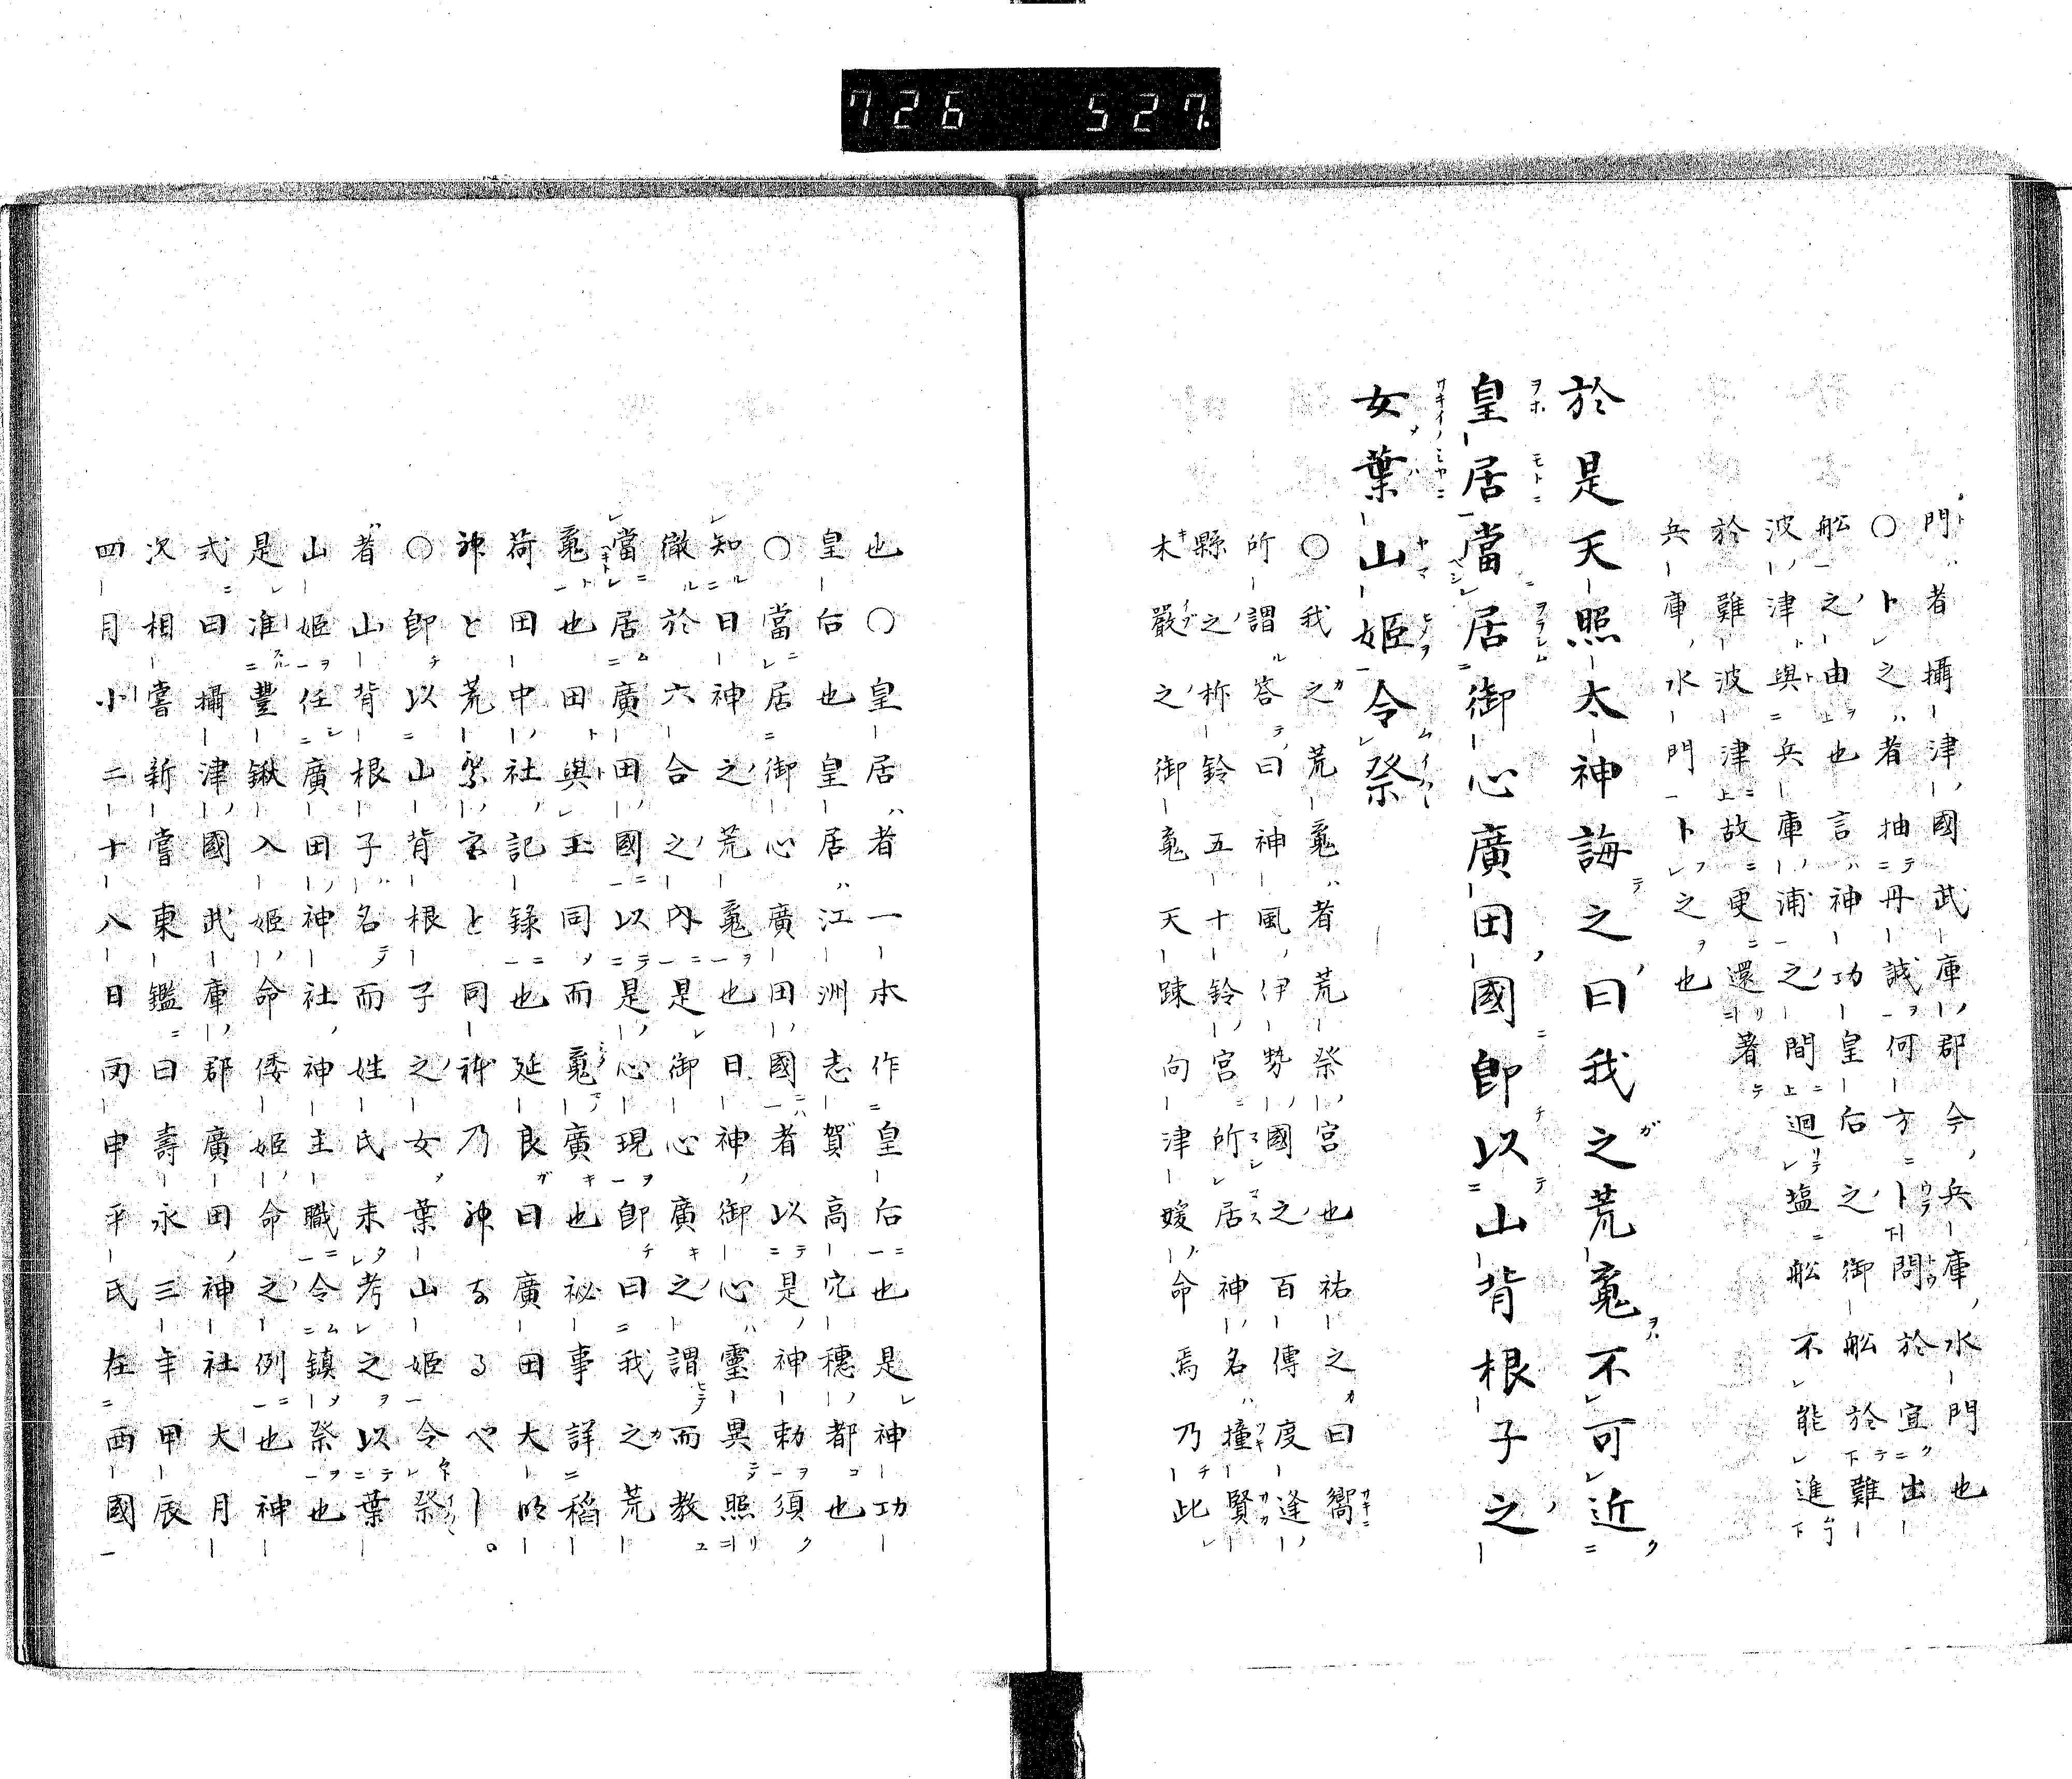 726 527.
門者攝津國武庫郡今兵庫水門也
○卜之者抽丹誠何方卜問於宜出
船之由也言神功皇后之御船於難
波津與兵庫浦之間迴塩船不能進
於難波津故更還著
兵庫水門卜之也
於是天照太神誨之曰我之荒䰟不可近
皇居當居御心廣田國即以山背根子之
女葉山姬令祭
○我之荒䰟者荒祭宮也祐之曰嚮
所謂答曰神風伊勢國之百傳度逢
縣之柝鈴五十鈴宮所居神名撞賢
木嚴之御䰟天踈向津媛命焉乃此
也○皇居者一本作皇后也是神功
皇后也皇居江洲志賀高穴穗都也
○當居御心廣田國者以是神勅須
知日神之荒䰟也日神御心靈異照
徹於六合之內是御心廣之謂而教
當居廣田國以是心現即曰我之荒
䰟也田與玉同而䰟廣也祕事詳稻
荷田中社記錄也延良曰廣田大明
神と荒祭宮と同神乃神なるや。
○即以山背根子之女葉山姬令祭
者山背根子名而姓氏未考之以葉
山姬任廣田神社神主職令鎮祭也
是准豐鍬入姬命倭姬命之例也神
式曰攝津國武庫郡廣田神社大月
次相嘗新嘗東鑑曰壽永三年甲辰
四月小二十八日丙申平氏在西國